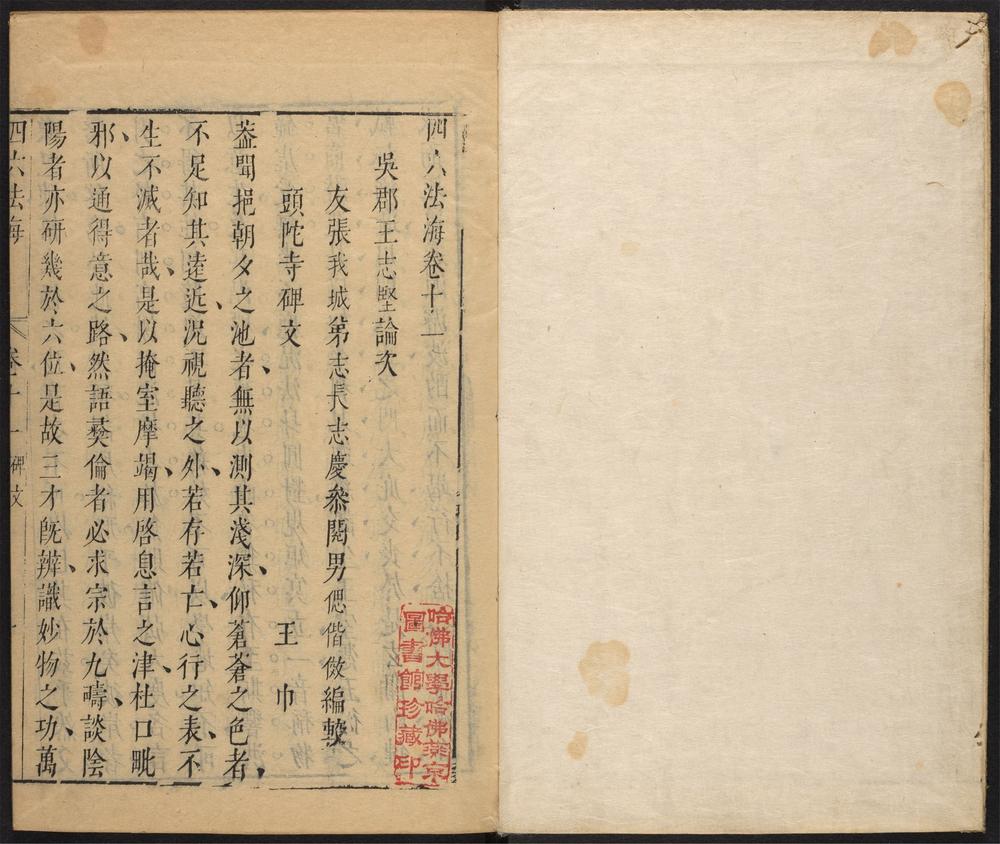 四六法海卷十一
吳郡王志堅論次
友張我城第志長志慶叅閱男偲偕倣編斆
頭陀寺碑文 王巾
葢聞挹朝夕之池者無以測其淺深仰蒼蒼之色者
不足知其遠近況視聽之外若存若亡心行之表不
生不滅者哉是以掩室摩竭用啓息言之津杜口毗
邪以通得意之路然語彝倫者必求宗於九疇談陰
陽者亦研幾於六位是故三才旣辨識妙物之功萬
四六法海 卷十一 碑文 一
哈佛大學哈佛燕京
圖書館珍藏印